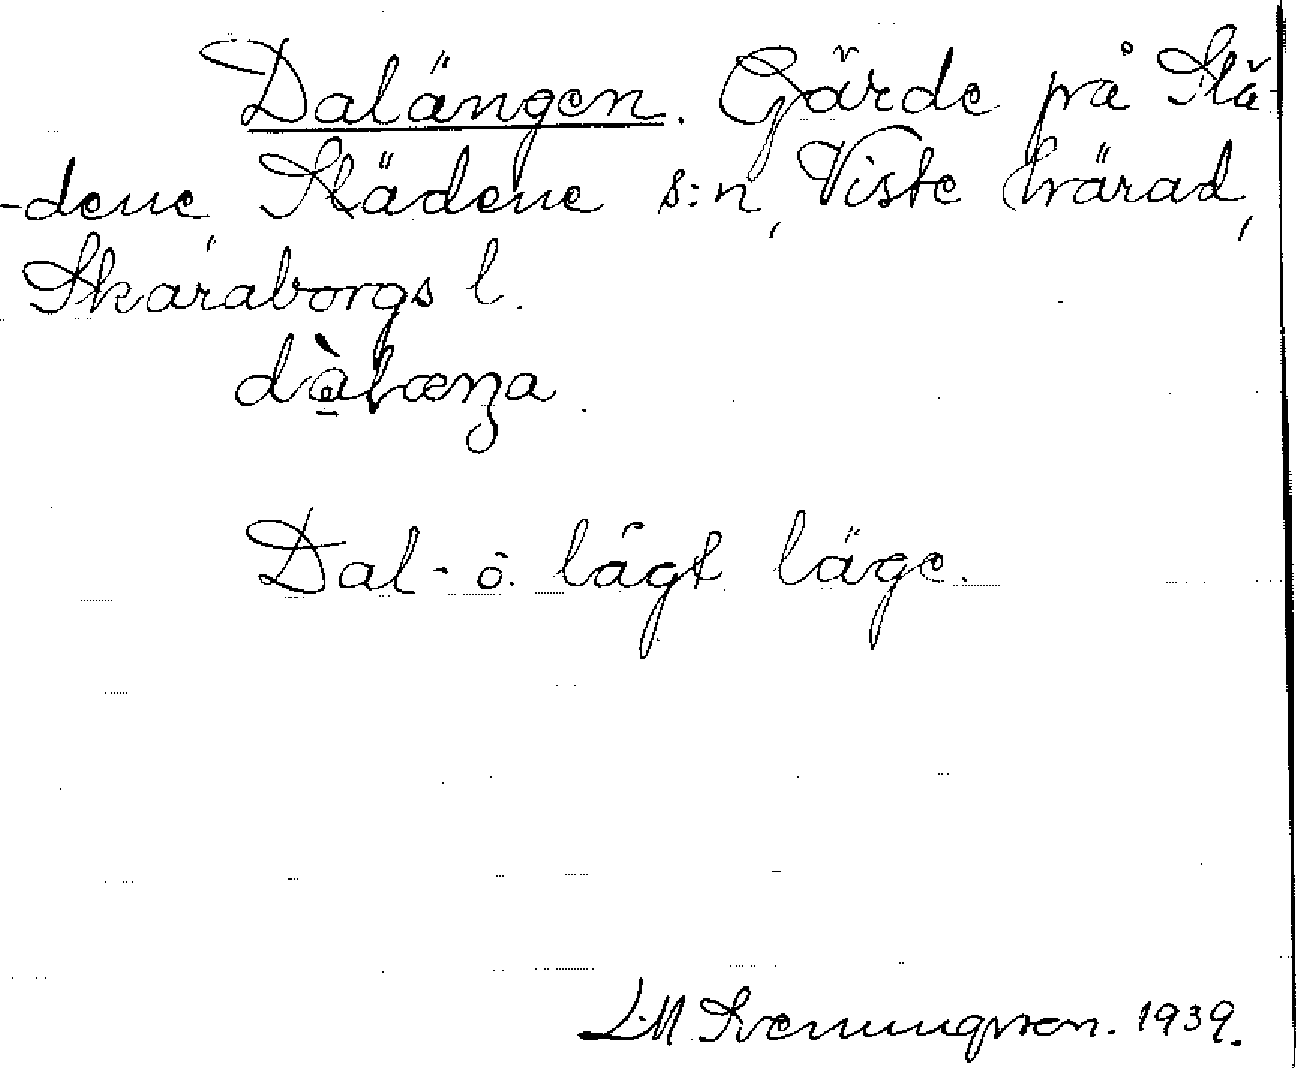 Dalängen. Gärde på Slä-
-dene, Slädene s:n, Viste härad,
Skaraborgs l.
Dal- ö. lågt läge.
L.M Svenungsson. 1939.